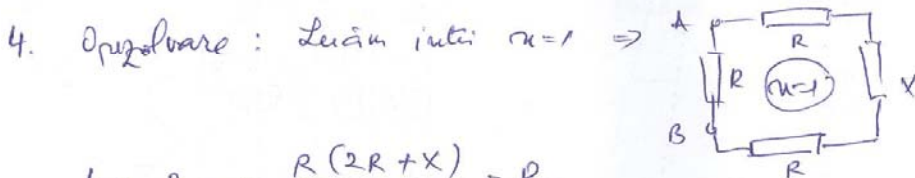 4. O rezolvare : Luăm întâi n=1 ⇒
A
R
R
n=1
X
B
R
R(2R+X)